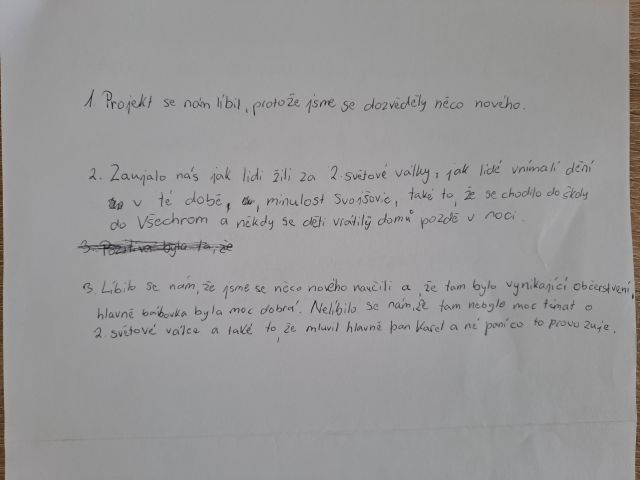 1. Projekt se nám líbil, protože jsme se dozvěděly něco nového.
2. Zaujalo nás jak lidi žili za 2. světové války, jak lidé vnímali dění
v té době, minulost Svojšovic, také to, že se chodilo do školy
do Všechrom a někdy se děti vrátily domů pozdě v noci.
3. Pozitiva bylo to, že
3. Líbilo se nám, že jsme se něco nového naučili a že tam bylo vynikající občerstvení,
hlavně bábovka byla moc dobrá. Nelíbilo se nám, že tam nebylo moc témat o
2. světové válce a také to, že mluvil hlavně pan Karel a né paní co to provozuje.